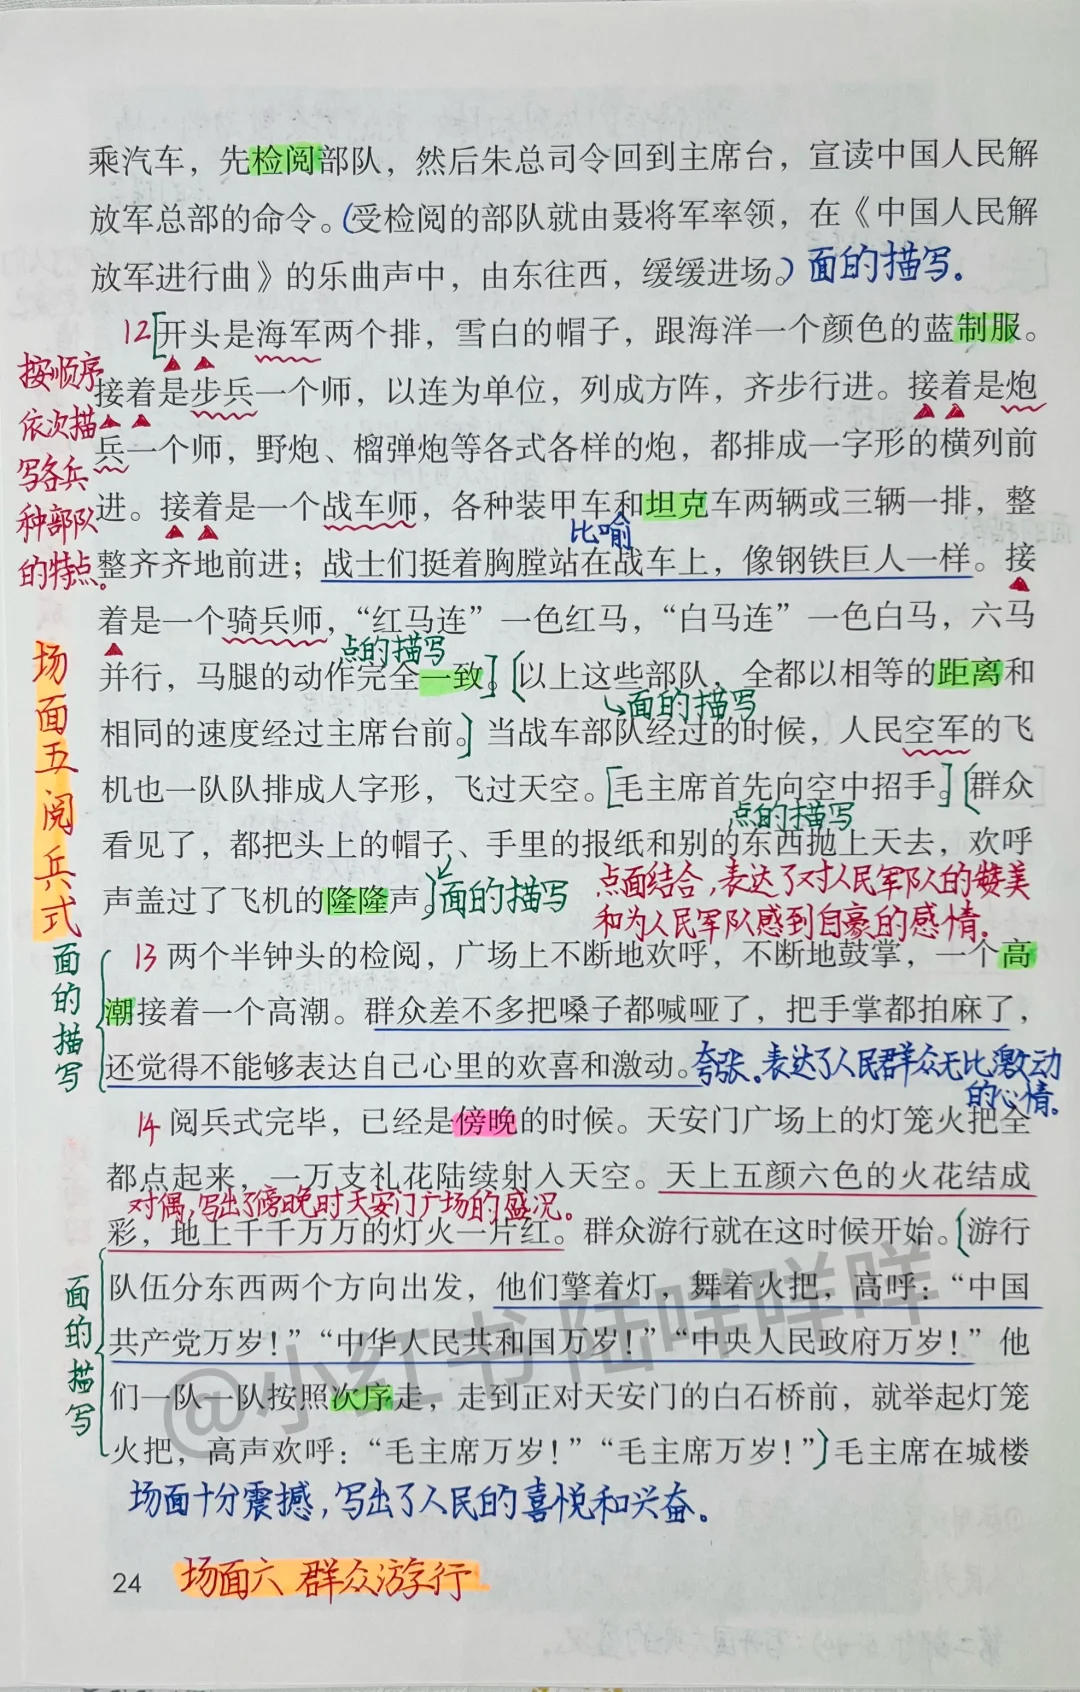 乘汽车，先检阅部队，然后朱总司令回到主席台，宣读中国人民解
放军总部的命令。(受检阅的部队就由聂将军率领，在《中国人民解
放军进行曲》的乐曲声中，由东往西，缓缓进场。)面的描写.
12[开头是海军两个排，雪白的帽子，跟海洋一个颜色的蓝制服。
按顺序
接着是步兵一个师，以连为单位，列成方阵，齐步行进。接着是炮
依次描
兵一个师，野炮、榴弹炮等各式各样的炮，都排成一字形的横列前
写各兵
进。接着是一个战车师，各种装甲车和坦克车两辆或三辆一排，整
种部队
比喻
整齐齐地前进；战士们挺着胸膛站在战车上，像钢铁巨人一样。接
的特点。
着是一个骑兵师，“红马连”一色红马，“白马连”一色白马，六马
点的描写
并行，马腿的动作完全一致。](以上这些部队，全都以相等的距离和
面的描写
相同的速度经过主席台前。]当战车部队经过的时候，人民空军的飞
机也一队队排成人字形，飞过天空。[毛主席首先向空中招手。](群众
点的描写
看见了，都把头上的帽子、手里的报纸和别的东西抛上天去，欢呼
声盖过了飞机的隆隆声。)面的描写
点面结合,表达了对人民军队的赞美
和为人民军队感到自豪的感情.
场面五阅兵式
13两个半钟头的检阅，广场上不断地欢呼，不断地鼓掌，一个高
潮接着一个高潮。群众差不多把嗓子都喊哑了，把手掌都拍麻了，
还觉得不能够表达自己心里的欢喜和激动。夸张。表达了人民群众无比激动
的心情。
面的描写
14阅兵式完毕，已经是傍晚的时候。天安门广场上的灯笼火把全
都点起来，一万支礼花陆续射入天空。天上五颜六色的火花结成
对偶,写出了傍晚时天安门广场的盛况。
彩，地上千千万万的灯火一片红。群众游行就在这时候开始。(游行
队伍分东西两个方向出发，他们擎着灯，舞着火把，高呼：“中国
共产党万岁！”“中华人民共和国万岁！”“中央人民政府万岁！”他
们一队一队按照次序走，走到正对天安门的白石桥前，就举起灯笼
火把，高声欢呼：“毛主席万岁！”“毛主席万岁！”)毛主席在城楼
面的描写
场面十分震撼,写出了人民的喜悦和兴奋。
24
场面六 群众游行
@小红书 陆咩咩咩